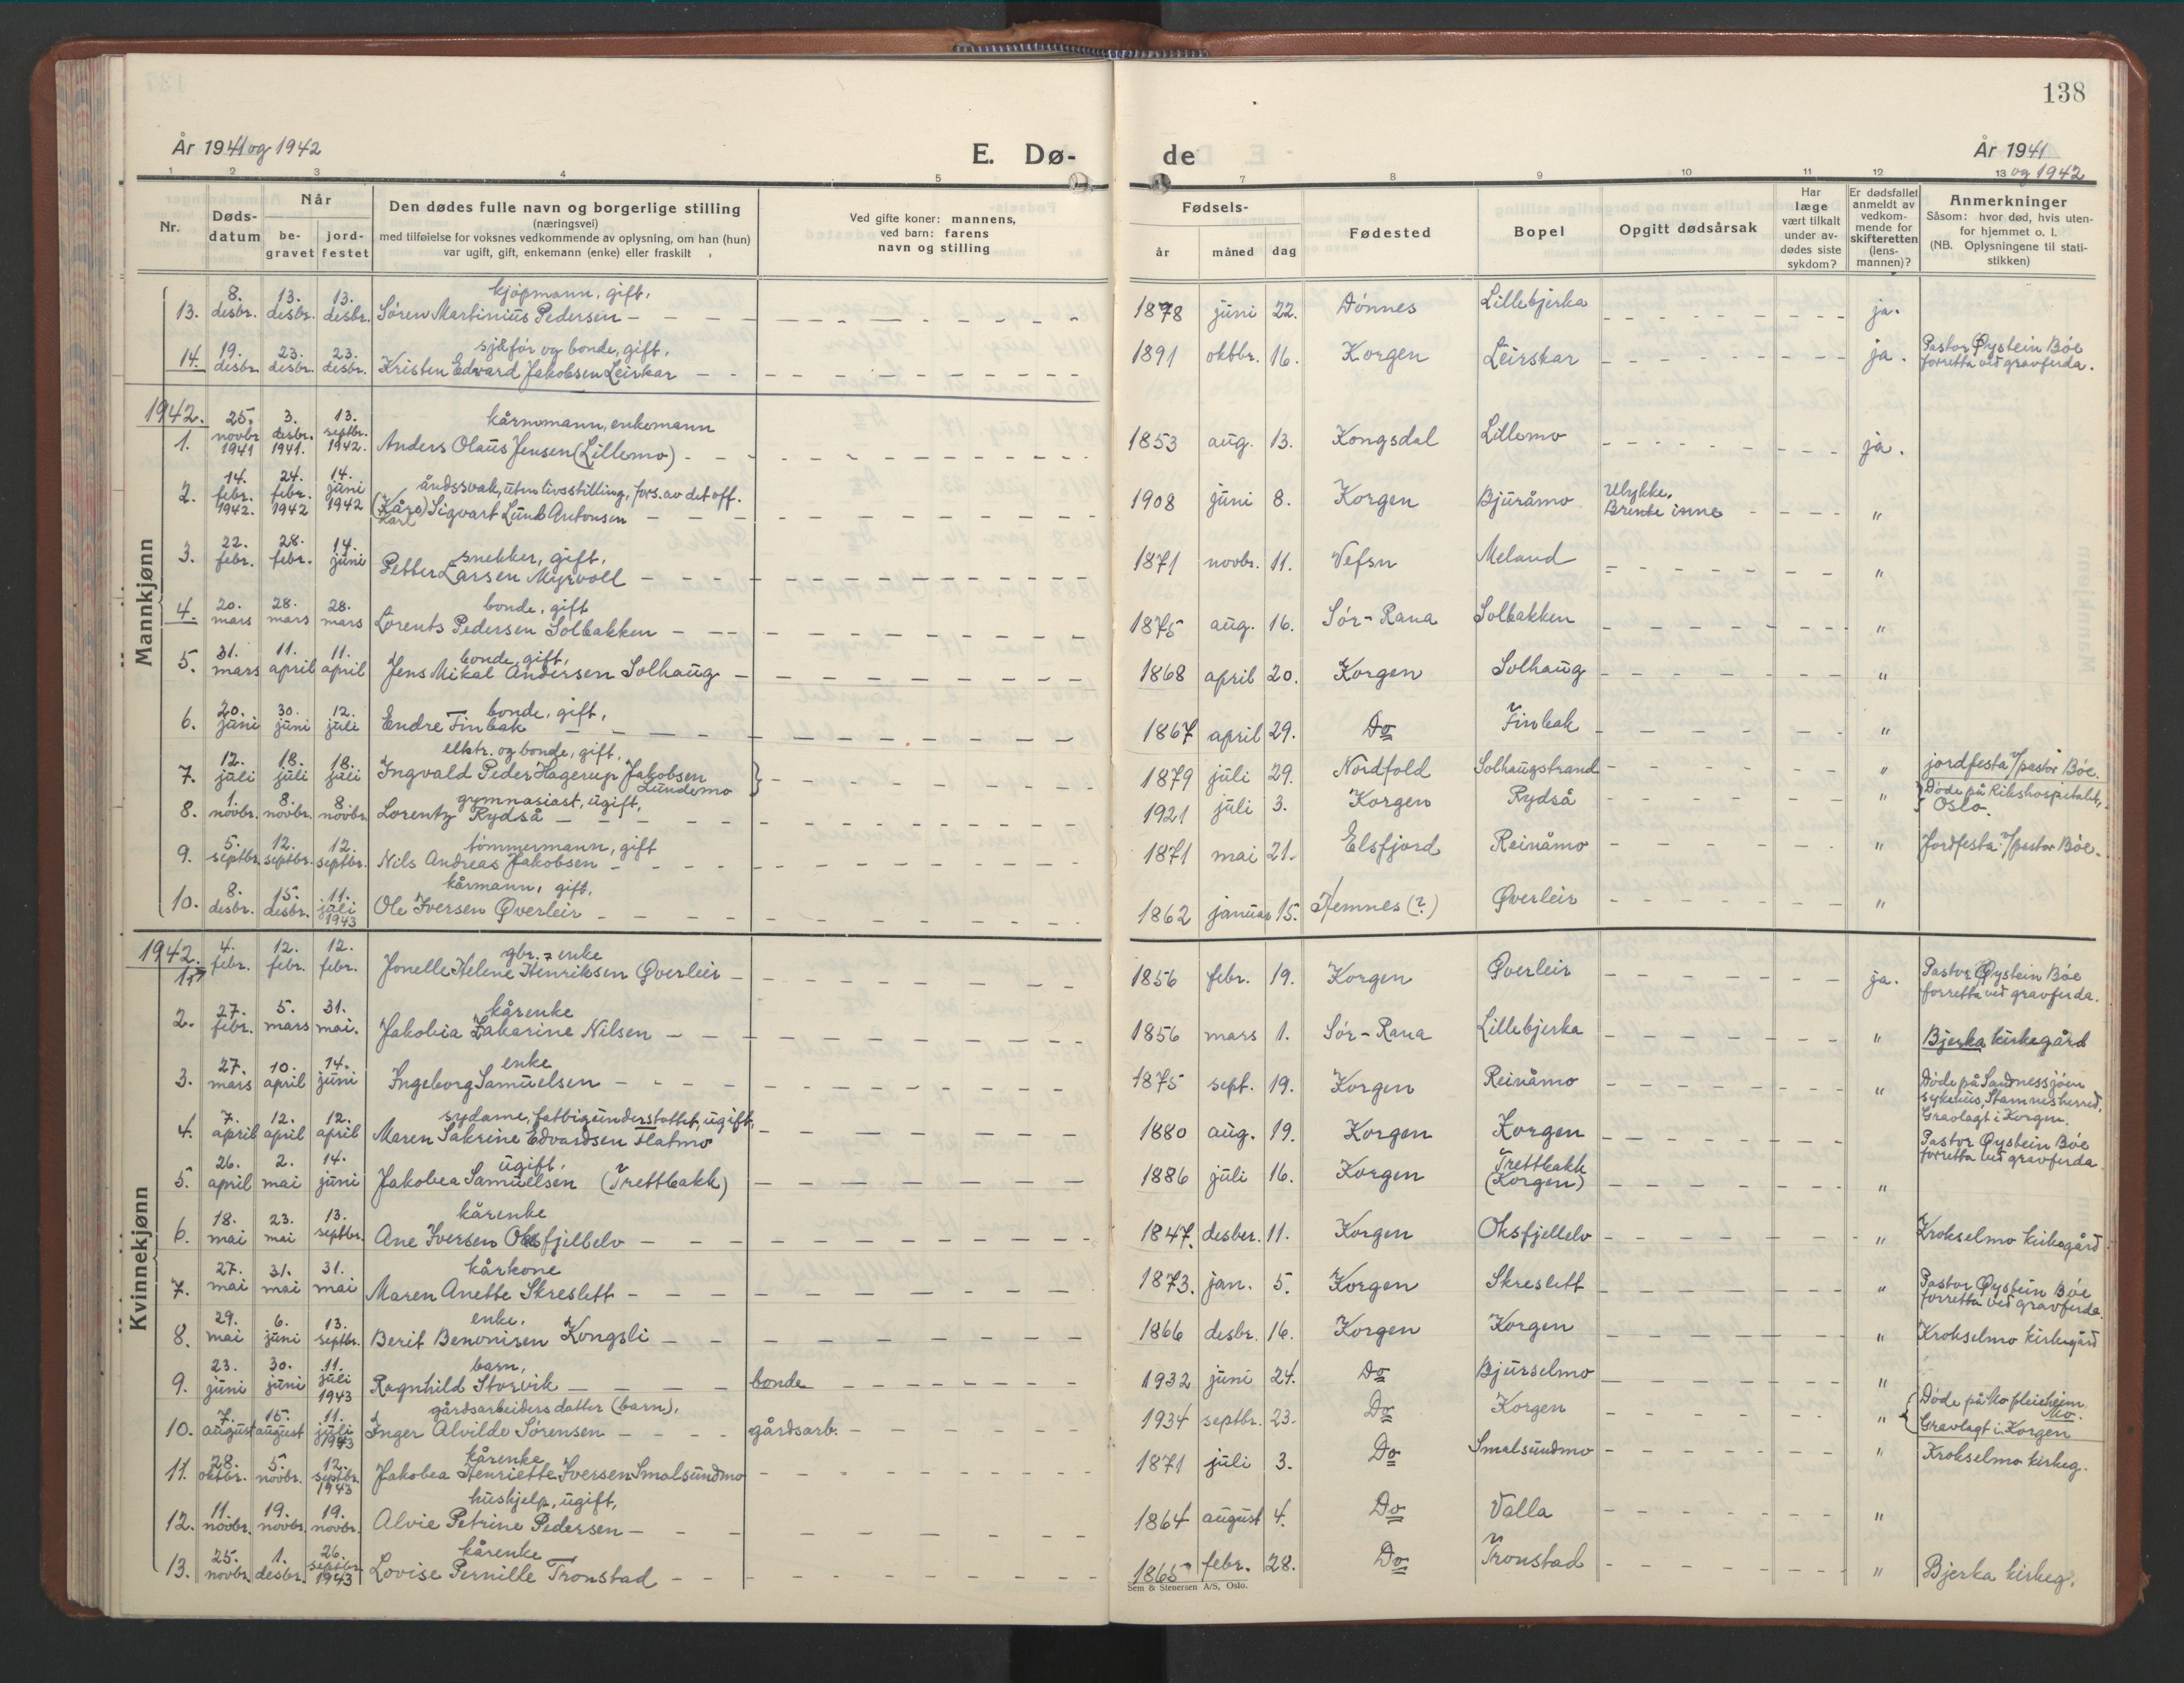 138
År 1941 og 1942
E. Dø-
de
År 1941 og 1942
1 2 3 4 5
7 8 9 10 11 12 13
Nr.
Døds-datum
Når
be-gravet
jord-festet
Den dødes fulle navn og borgerlige stilling
(næringsvei)
med tilføielse for voksnes vedkommende av oplysning, om han (hun)
var ugift, gift, enkemann (enke) eller fraskilt
Ved gifte koner: mannens,
ved barn: farens
navn og stilling
Fødsels-
år måned dag
Fødested
Bopel
Opgitt dødsårsak
Har læge vært tilkalt under av-dødes siste sykdom?
Er dødsfallet anmeldt av vedkom-mende for skifteretten (lens-mannen)?
Anmerkninger
Såsom: hvor død, hvis uten-
for hjemmet o. l.
(NB. Oplysningene til stati-
stikken)
Mannkjønn
13. 8. desbr. 13. desbr. 13. desbr. kjøpmann, gift, Søren Martinius Pedersen 1878 juni 22. Dønnes Lillebjerka ja.
14. 19. desbr. 23. desbr. 23. desbr. sjåfør og bonde, gift, Kristen Edvard Jakobsen Leirskar 1891 oktbr. 16. Korgen Leirskar ja. Pastor Øystein Bøe forretta ved gravferda.
1942.
1. 25. novbr 1941 3. desbr. 1941. 13. septbr. 1942. kårmann, enkemann Anders Olaus Jensen (Lillemo) 1853 aug. 13. Kongsdal Lillemo ja.
2. 14. febr. 1942. 24. febr. 1942 14. juni 1942 åndssvak, uten livsstilling, fors. av det off. (Kåre) Karl Sigvart Lund Antonsen 1908 juni 8. Korgen Bjuråmo Ulykke, Brente inne "
3. 22. febr. 28. febr. 14. juni snekker, gift, Petter Larsen Myrvoll 1871 novbr. 11. Vefsn Meland "
4. 20. mars 28. mars 28. mars bonde, gift Lorents Pedersen Solbakken 1875 aug. 16. Sør-Rana Solbakken "
5. 31. mars 11. april 11. april bonde, gift, Jens Mikal Andersen Solhaug 1868 april 20. Korgen Solhaug "
6. 20. juni 30. juni 12. juli bonde, gift, Endre Finbak 1867 april 29. Do Finbak "
7. 12. juli 18. juli 18. juli elktr. og bonde, gift, Ingvald Peder Hagerup Jakobsen Lundemo 1879 juli 29. Nordfold Solhaugstrand " jordfesta v/pastor Bøe.
8. 1. novbr. 8. novbr. 8. novbr. gymnasiast, ugift, Lorentz Rydså 1921 juli 3. Korgen Rydså " Døde på Rikshospitalet, Oslo.
9. 5. septbr. 12. septbr. 12. septbr. tømmermann, gift Nils Andreas Jakobsen 1871 mai 21. Elsfjord Reinåmo " Jordfesta v/pastor Bøe.
10. 8. desbr. 15. desbr. 11. juli 1943 kårmann, gift, Ole Iversen Øverleir 1862 januar 15. Hemnes (?) Øverleir "
Kvinnekjønn
1942.
1. 4. febr. 12. febr. 12. febr. gbr.-enke Jonelle Helene Henriksen Øverleir 1856 febr. 19. Korgen Øverleir ja. Pastor Øystein Bøe forretta ved gravferda.
2. 27. febr. 5. mars 31. mai. kårenke Jakobia Zakarine Nilsen 1856 mars 1. Sør-Rana Lillebjerka " Bjerka kirkegård
3. 27. mars 10. april 14. juni enke Ingeborg Samuelsen 1875 sept. 19. Korgen Reinåmo " Døde på Sandnessjøen sykehus, Stamnes herred, Gravlagt i Korgen.
4. 7. april 12. april 12. april sydame, fattigunderstøttet, ugift, Maren Sakrine Edvardsen Hatmo 1880 aug. 19. Korgen Korgen Pastor Øystein Bøe forretta ved gravferda.
5. 26. april 2. mai 14. juni ugift, Jakobea Samuelsen (Trettbakk) 1886 juli 16. Korgen Trettbakk (Korgen) "
6. 18. mai 23. mai 13. septbr. kårenke Ane Iversen Oksfjellelv 1847. desber. 11. Korgen Oksfjellelv " Krokselmo kirkegård.
7. 27. mai 31. mai 31. mai kårkone Maren Anette Skreslett 1873. jan. 5. Korgen Skreslett " Pastor Øystein Bøe forretta ved gravferda.
8. 29. mai 6. juni 13. septbr. enke, Berit Benonisen Kongsli 1866 desbr. 16. Korgen Korgen " Krokselmo kirkegård
9. 23. juni 30. juni 11. juli 1943 barn, Ragnhild Storvik bonde 1932 juni 24. Do Bjurselmo "
10. 7. august 15. august 11. juli 1943 gårdsarbeiders datter (barn), Inger Alvilde Sørensen gårdsarb. 1934 septbr. 23. Do Korgen " Døde på Mo pleieheim, Mo. Gravlagt i Korgen
11. 28. oktbr. 5. novbr. 12. septbr. 1943 kårenke Jakobea Henriette Iversen Smalsundmo 1871 juli 3. Do Smalsundmo " Krokselmo kirkeg.
12. 11. novbr. 19. novbr. 19. novbr. hushjelp, ugift, Alvie Petrine Pedersen 1864 august 4. Do Valla "
13. 25. novbr. 1. desbr. 26. septbr. 1943 kårenke Lovise Pernille Tronstad 1865 febr. 28. Do Tronstad " Bjerka kirkeg.
Sem & Stenersen A/S, Oslo.